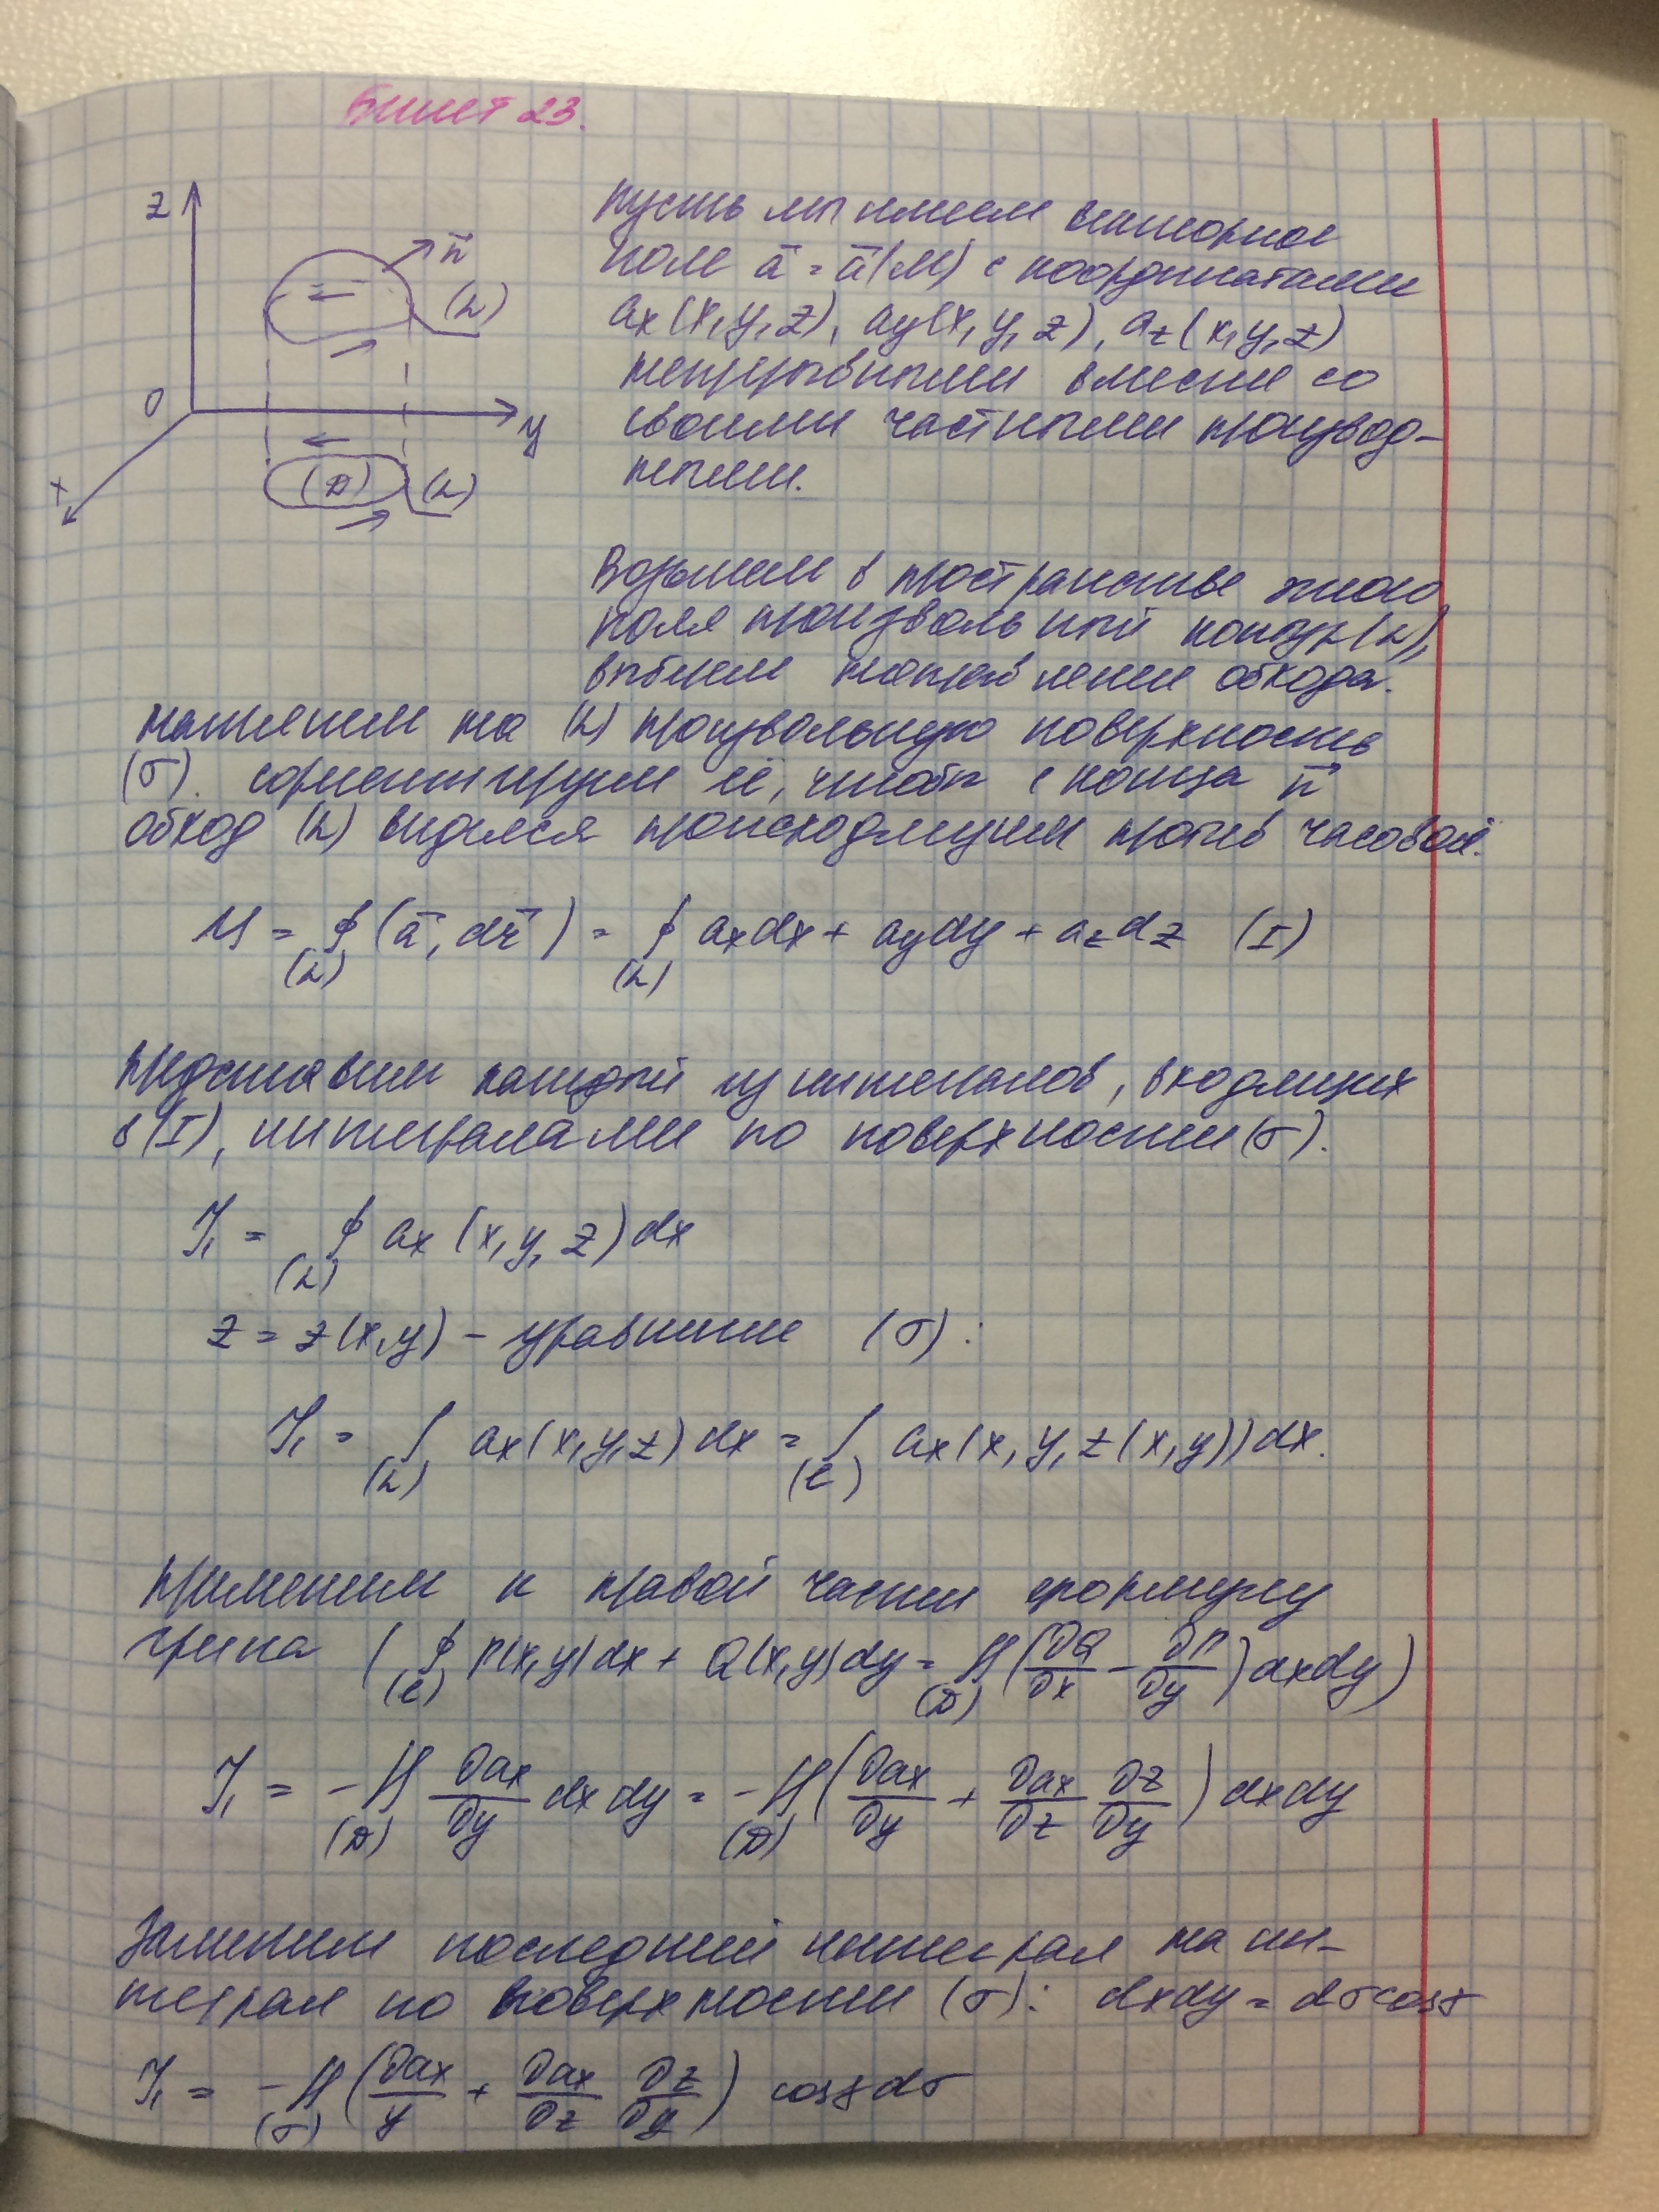 Билет 23.
z
n⃗
(L)
0
y
x
(D)
(L)
Пусть мы имеем векторное
поле a⃗ = a⃗(M) с координатами
ax(x,y,z), ay(x,y,z), az(x,y,z)
непрерывными вместе со
своими частными производ-
ными.
Возьмем в пространстве этого
поля произвольный контур (L),
выбрем направление обхода.
Натянем на (L) произвольную поверхность
(σ). сориентируем её, чтобы с конца n⃗
обход (L) виделся происходящим против часовой.
Ц = ∮(L) (a⃗, dr⃗) = ∮(L) axdx + aydy + azdz (I)
Представим каждый из интегралов, входящих
в (I), интегралами по поверхности (σ).
J₁ = ∮(L) ax (x,y,z)dx
z = z(x,y) - уравнение (σ):
J₁ = ∫(L) ax(x,y,z)dx = ∫(l) ax(x,y,z(x,y))dx.
Применим к правой части формулу
Грина (∮(l) P(x,y)dx + Q(x,y)dy = ∬(D) (∂Q/∂x - ∂P/∂y)dxdy)
J₁ = -∬(D) ∂ax/∂y dxdy = -∬(D) (∂ax/∂y + ∂ax/∂z ∂z/∂y) dxdy
Заменим последний интеграл на ин-
теграл по поверхности (σ): dxdy = dσcosγ
J₁ = -∬(σ) (∂ax/y + ∂ax/∂z ∂z/∂y) cosγdσ